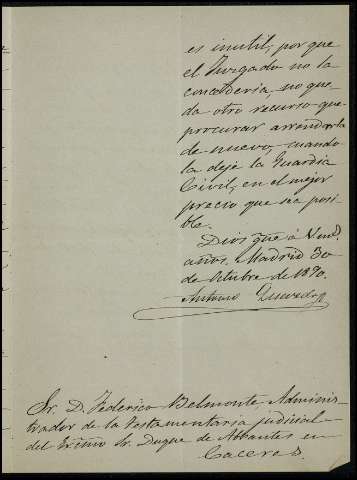 es inutil, por que
el Juzgado no la
concederia, no que-
da otro recurso que
procurar arrendarla
de nuevo, cuando
la deje la Guardia
Civil, en el mejor
precio que sea posi-
ble.
Dios gue á Vmd.
años. Madrid 30
de Octubre de 1890.
Arturo Quevedo
Sr. D. Federico Belmonte, Adminis-
trador de la Testamentaria judicial
del Excmo Sr. Duque de Abrantes en
Caceres.